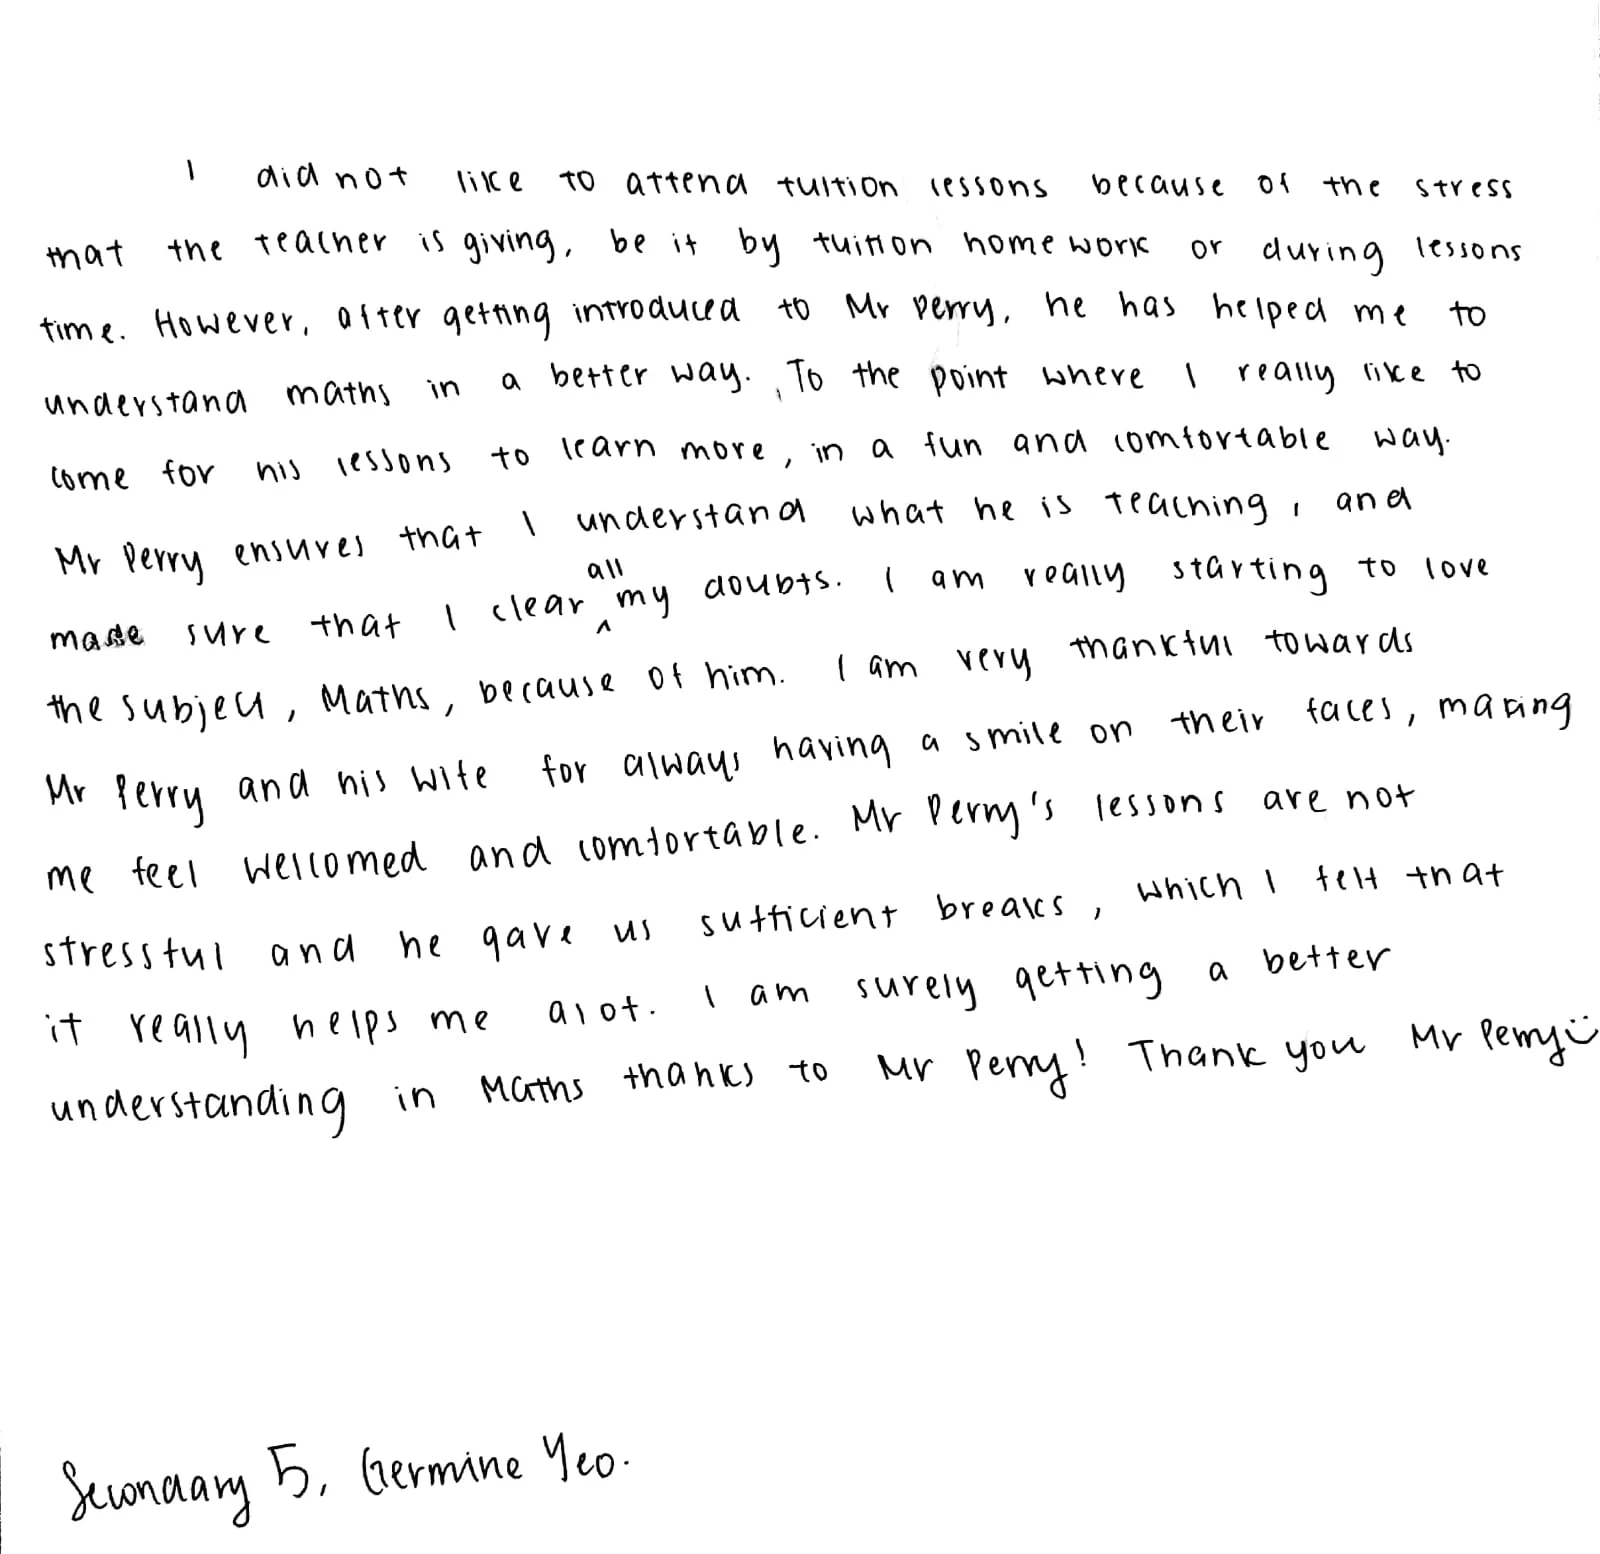 I did not like to attend tuition lessons because of the stress
that the teacher is giving, be it by tuition homework or during lessons
time. However, after getting introduced to Mr Perry, he has helped me to
understand maths in a better way. To the point where I really like to
come for his lessons to learn more, in a fun and comfortable way.
Mr Perry ensures that I understand what he is teaching, and
made sure that I clear all my doubts. I am really starting to love
the subject, Maths, because of him. I am very thankful towards
Mr Perry and his wife for always having a smile on their faces, making
me feel wellcomed and comfortable. Mr Perry's lessons are not
stressful and he gave us sufficient breaks, which I felt that
it really helps me alot. I am surely getting a better
understanding in Maths thanks to Mr Perry! Thank you Mr Perry :)
Secondary 5, Germine Yeo.